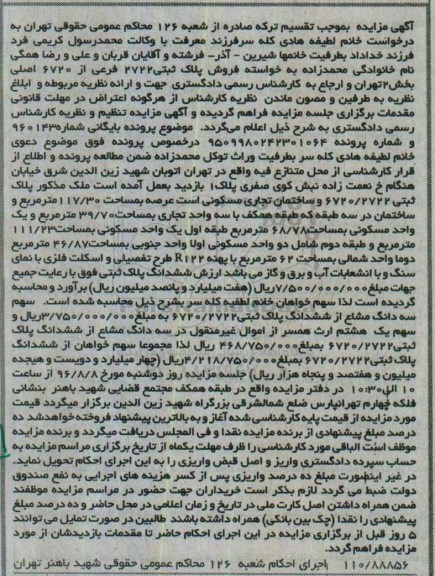 آگهی مزایده بموجب تقسیم ترکه صادره از شعبه ۱۲۶ محاکم عمومی حقوقی تهران به
درخواست خانم لطیفه هادی کله سرفرزند معرفت با وکالت محمدرسول کریمی فرد
فرزند خداداد بطرفیت خانمها شیرین - آذر- فرشته و آقایان قربان و علی و رضا همگی
نام خانوادگی محمدزاده به خواسته فروش پلاک ثبتی۲۷۲۲ فرعی از ۶۷۲۰ اصلی
بخش۲تهران و ارجاع به کارشناس رسمی دادگستری جهت و ارائه نظریه مربوطه و ابلاغ
نظریه به طرفین و مصون ماندن نظریه کارشناس از هرگونه اعتراض در مهلت قانونی
مقدمات برگزاری جلسه مزایده فراهم گردیده و آگهی مزایده تنظیم و نظریه کارشناس
رسمی دادگستری به شرح ذیل اعلام می‌گردد. موضوع پرونده بایگانی شماره۹۶۰۱۴۳
و شماره پرونده ۹۵۰۹۹۸۰۲۴۲۳۰۱۰۶۴ درخصوص پرونده فوق موضوع دعوی
خانم لطیفه هادی کله سر بطرفیت وراث توکل محمدزاده ضمن مطالعه پرونده و اطلاع از
قرار کارشناسی از محل متنازع فیه واقع در تهران اتوبان شهید زین الدین شرق خیابان
هنگام خ نعمت زاده نبش کوی صفری پلاک۱ بازدید بعمل آمده است ملک مذکور پلاک
ثبتی ۶۷۲۰/۲۷۲۲ و ساختمان تجاری مسکونی است عرصه بمساحت ۱۱۷/۳۰مترمربع و
ساختمان در سه طبقه طبقه همکف با سه واحد تجاری بمساحت۳۹/۷۰ مترمربع و یک
واحد مسکونی بمساحت۶۸/۷۸ مترمربع طبقه اول یک واحد مسکونی بمساحت۱۱۱/۲۳
مترمربع و طبقه دوم شامل دو واحد مسکونی اولا واحد جنوبی بمساحت۴۶/۸۷ مترمربع
دوما واحد شمالی بمساحت ۶۲ مترمربع با پهنه R۱۲۲ طرح تفصیلی و اسکلت فلزی با نمای
سنگ و با انشعابات آب و برق و گاز می باشد ارزش ششدانگ پلاک ثبتی فوق با رعایت جمیع
جهات مبلغ۷/۵۰۰/۰۰۰/۰۰۰ریال (هفت میلیارد و پانصد میلیون ریال) برآورد و محاسبه
گردیده است لذا سهم خواهان خانم لطفیه کله سر بشرح ذیل محاسبه شده است. سهم
سه دانگ مشاع از ششدانگ پلاک ثبتی۶۷۲۰/۲۷۲۲ به مبلغ۳/۷۵۰/۰۰۰/۰۰۰ریال و
سهم یک هشتم ارث همسر از اموال غیرمنقول در سه دانگ مشاع از ششدانگ پلاک
ثبتی۶۷۲۰/۲۷۲۲ بمبلغ۴۶۸/۷۵۰/۰۰۰ ریال لذا مجموعا سهم خواهان از ششدانگ
پلاک ثبتی۶۷۲۰/۲۷۲۲ بمبلغ۴/۲۱۸/۷۵۰/۰۰۰ریال (چهار میلیارد و دویست و هیجده
میلیون و هفتصد و پنجاه هزار ریال) جلسه مزایده روز دوشنبه مورخ ۹۶/۸/۸ از ساعت
۱۰ الی۱۰:۳۰ در دفتر مزایده واقع در طبقه همکف مجتمع قضایی شهید باهنر بنشانی
فلکه چهارم تهرانپارس ضلع شمالشرقی بزرگراه شهید زین الدین برگزار میگردد قیمت
مورد مزایده از قیمت پایه کارشناسی شده آغاز و به بالاترین پیشنهاد فروخته خواهدشد ده
درصد مبلغ پیشنهادی از برنده مزایده نقدا و فی المجلس دریافت میگردد و برنده مزایده
موظف است الباقی مورد کارشناسی را ظرف مهلت یکماه از تاریخ برگزاری مراسم مزایده به
حساب سپرده دادگستری واریز و اصل قبض واریزی را به این اجرای احکام تحویل نماید.
در غیر اینصورت مبلغ ده درصد واریزی پس از کسر هزینه های اجرایی به نفع صندوق
دولت ضبط می گردد لازم بذکر است خریداران جهت حضور در مراسم مزایده موظفند
ضمن همراه داشتن اصل کارت ملی در تاریخ و زمان اعلامی در محل حاضر و ده درصد مبلغ
پیشنهادی را نقدا (چک بین بانکی) همراه داشته باشند طالبین در صورت تمایل می توانند
۵ روز قبل از برگزاری مزایده در این اجرای احکام حاضر تا مقدمات بازدیدشان از مورد
مزایده فراهم گردد.
۱۱۰/۸۸۸۵۶ اجرای احکام شعبه ۱۲۶ محاکم عمومی حقوقی شهید باهنر تهران